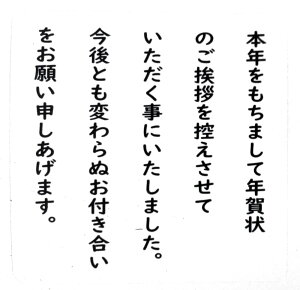 本年をもちまして年賀状
のご挨拶を控えさせて
いただく事にいたしました。
今後とも変わらぬお付き合い
をお願い申しあげます。